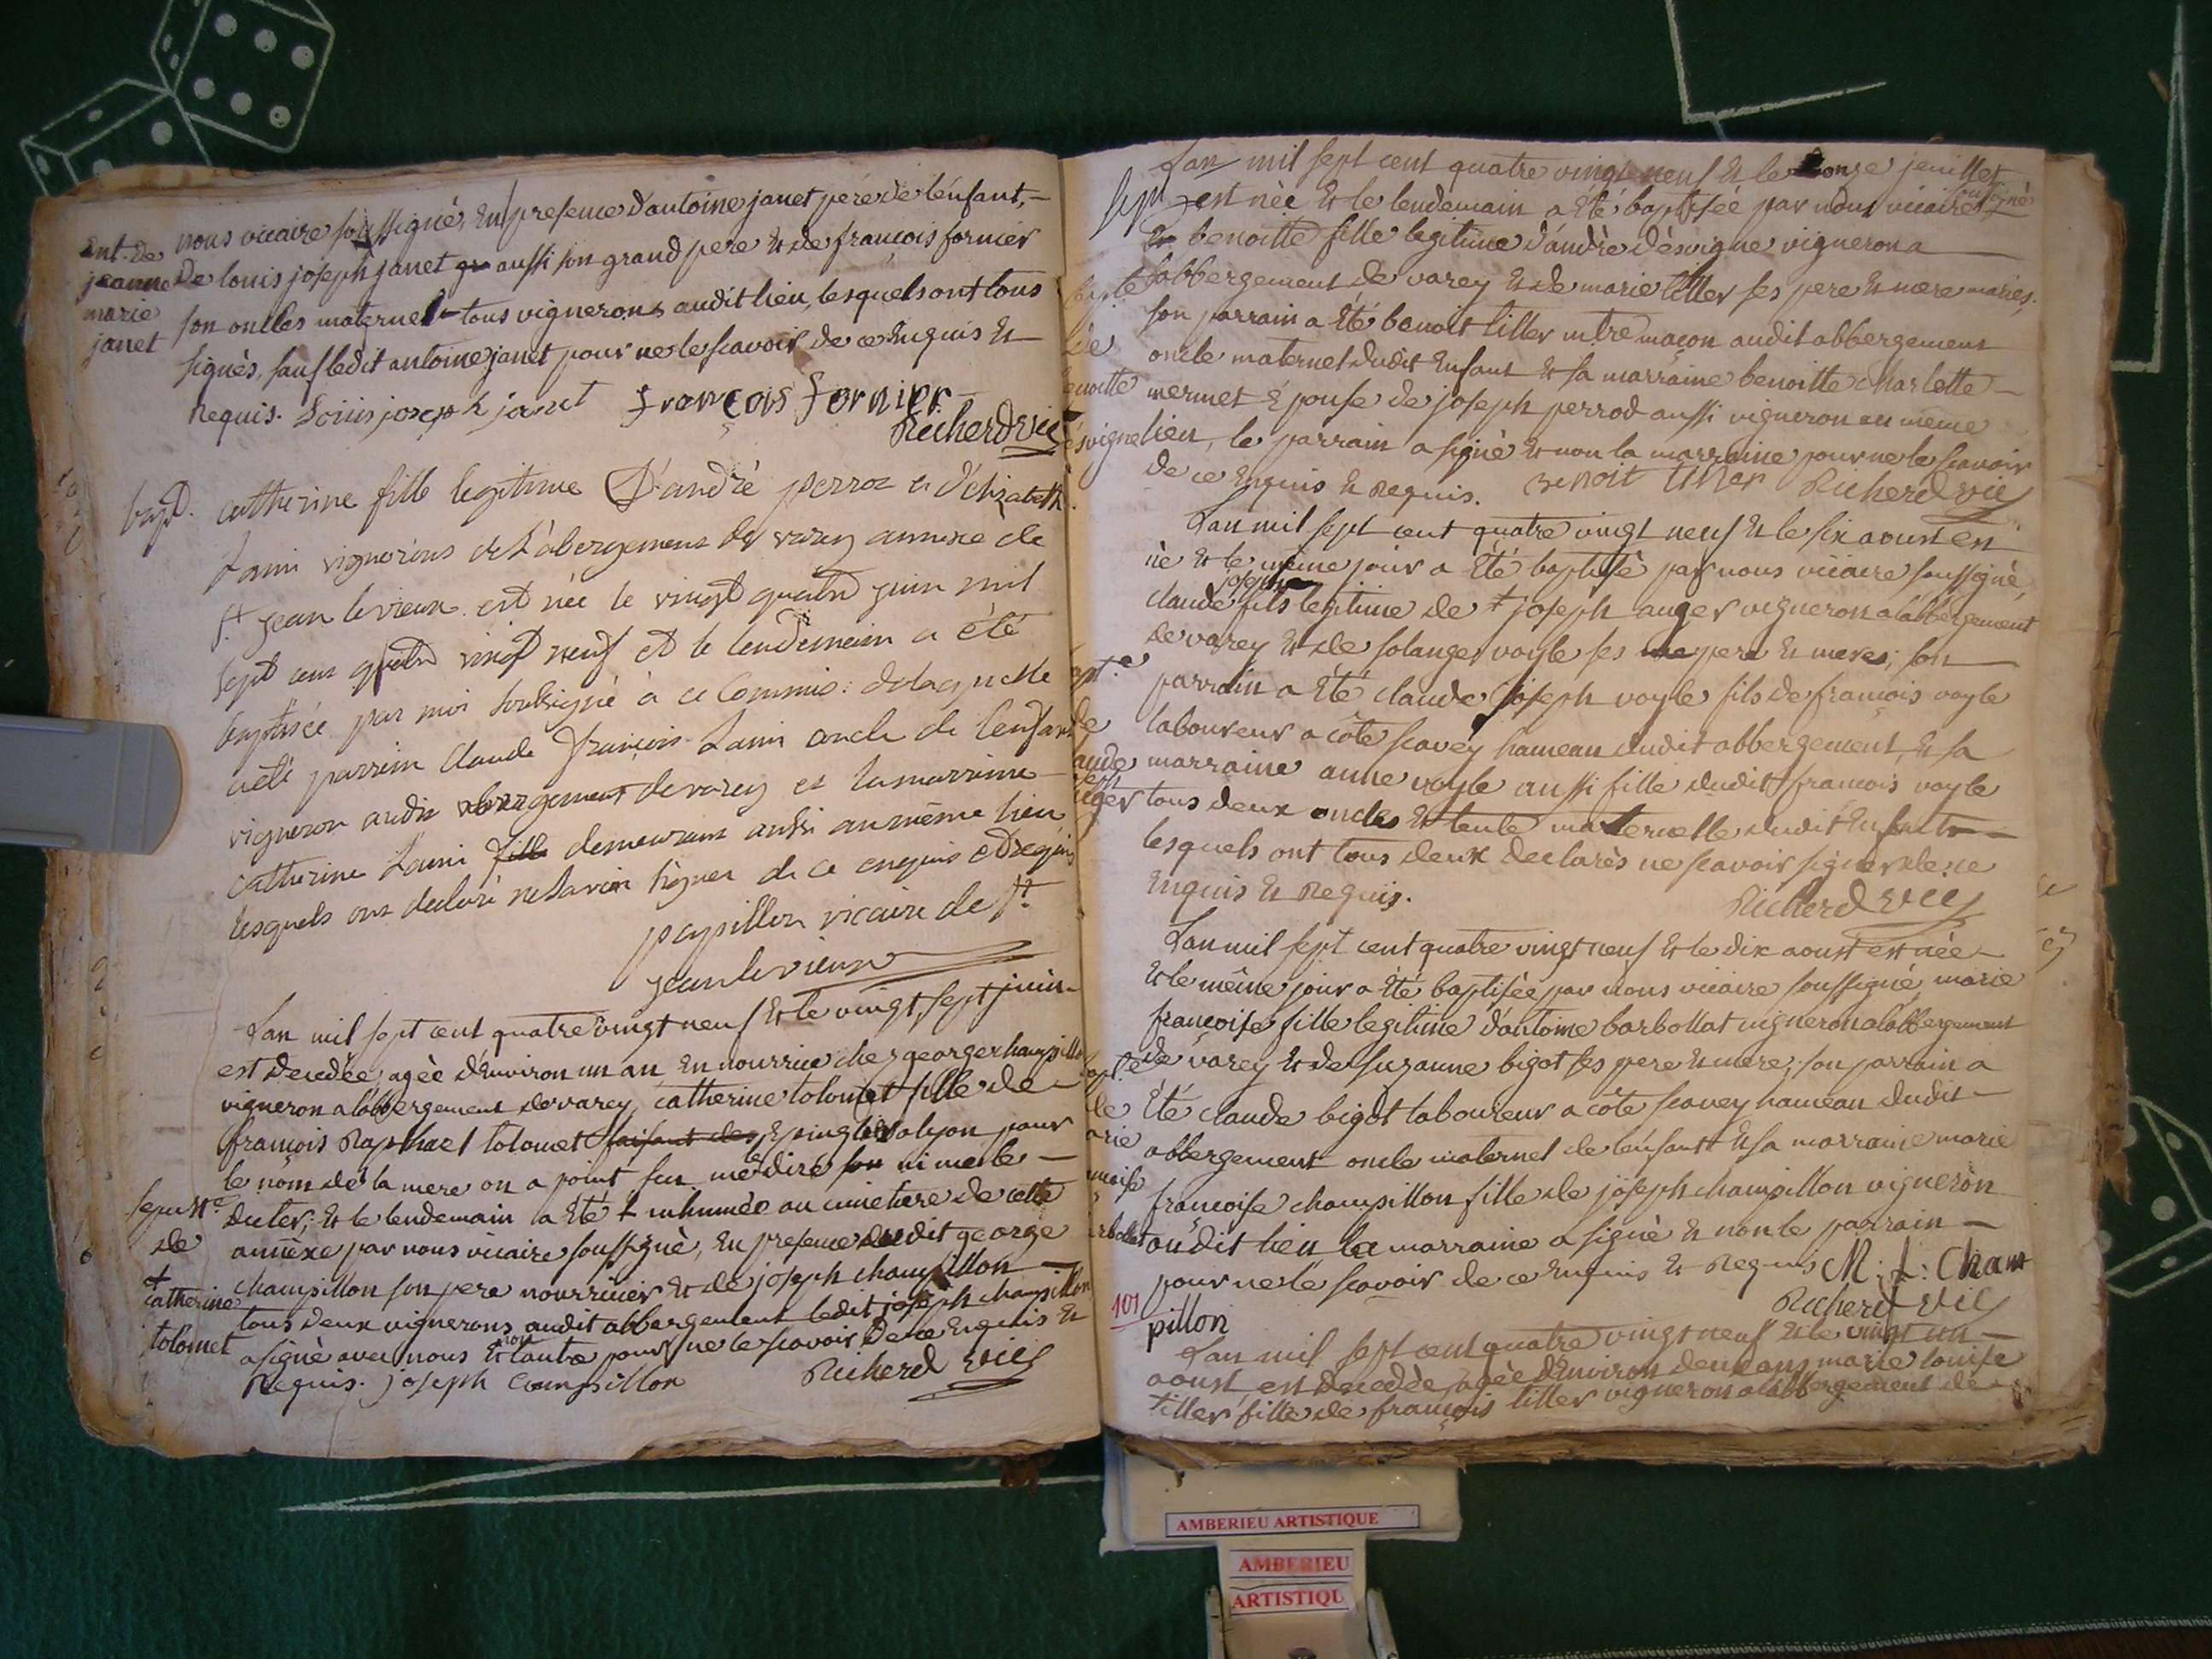 ent. de
jeanne
marie
janet
nous vicaire soussigné, En presence d'antoine janet pere de l'énfant,
de louis joseph janet aussi son grand pere & de françois fornier
son oncles maternel tous vignerons audit lieu, lesquels ont tous
signès, sauf ledit antoine janet pour ne le scavoir de ce Enquis &
Requis. Loüis joseph janet françois fornier
Richerd vic
bapt.
catherine fille legitime D'andré perroz et d'élizabeth
Lami vignerons de L'abergement de varey annexe de
St. jean le vieux est née le vingt quatre juin mil
sept cens quatre vingt neuf et le lendemain a été
baptisée par moi soussigné à ce Commis: de laquelle
a été parrein Claude françois Lami oncle de l'enfant
vigneron audit abergement de varey et la marreine
catherine Lami fille demeurant aussi au même lieu
lesquels ont declaré ne savoir signer de ce enquis et requis
papillon vicaire de St.
jean le vieux
L'an mil sept cent quatre vingt neuf & le vingt sept juin
est decedée, agèe d'Environ un an En nourrice chez george champillon
vigneron a l'abbergement de varey, catherine tolomet fille de
françois Raphael tolomet faisant des Epinglier a lyon pour
le nom de la mere on a point seu me le dire ni me le
dicter; & le lendemain a Eté inhumée au cimetiere de cette
annèxe par nous vicaire soussigné, En presence dudit george
champillon son pere nourricier & de joseph champillon
tous deux vignerons audit abbergement ledit joseph champillon
a signé avec nous & non l'autre pour ne le scavoir de ce Enquis &
Requis. joseph Champillon Richerd vic
sepult.e
de
catherine
tolomet
L'an mil sept cent quatre vingt neuf & le onze jeuillet
est nèe & le lendemain a Eté baptisée par nous vicaire soussigné
benoitte fille legitime d'andrè dèsvigne vigneron a
l'abbergement de varey & de marie tiller ses pere & mere mariés.
son parrain a Eté benoit tiller mtre maçon audit abbergement
oncle maternel dudit Enfant & sa marraine benoitte charlotte
mermet Epouse de joseph perrod aussi vigneron au meme
lieu, le parrain a signé & non la marraine pour ne le scavoir
de ce Enquis & Requis. Benoit tiller Richerd vic
L'an mil sept cent quatre vingt neuf & le six aoust est
nè & le même jour a Eté baptisé par nous vicaire soussigné,
joseph
claude fils legitime de joseph auger vigneron a l'abbergement
de varey & de solange voyle ses pere & meres; son
parrain a Eté claude joseph voyle fils de françois voyle
laboureur a côte savey hameau dudit abbergement, & sa
marraine anne voyle aussi fille dudit françois voyle
tous deux oncles & tente maternelle dudit Enfant
lesquels ont tous deux declarès ne scavoir signer de ce
Enquis & Requis.
Richerd vic
L'an mil sept cent quatre vingt neuf & le dix aoust est née
& le même jour a Eté baptisée par nous vicaire soussigné, marie
françoise fille legitime d'antoine barbollat vigneron a l'abbergement
de varey & de suzanne bigot ses pere & mere; son parrain a
Eté claude bigot laboureur a côte savey hameau dudit
abbergement oncle maternel de l'enfant & sa marraine marie
françoise champillon fille de joseph champillon vigneron
au dit lieu la marraine a signé & non le parrain
pour ne le scavoir de ce Enquis & Requis M: f: Cham
pillon
Richerd vic
101
L'an mil sept cent quatre vingt neuf & le vingt un
aoust est decedée, agèe d'Environ deux ans marie louise
tiller fille de françois tiller vigneron a l'abbergement de
AMBERIEU ARTISTIQUE
AMBERIEU
ARTISTIQU